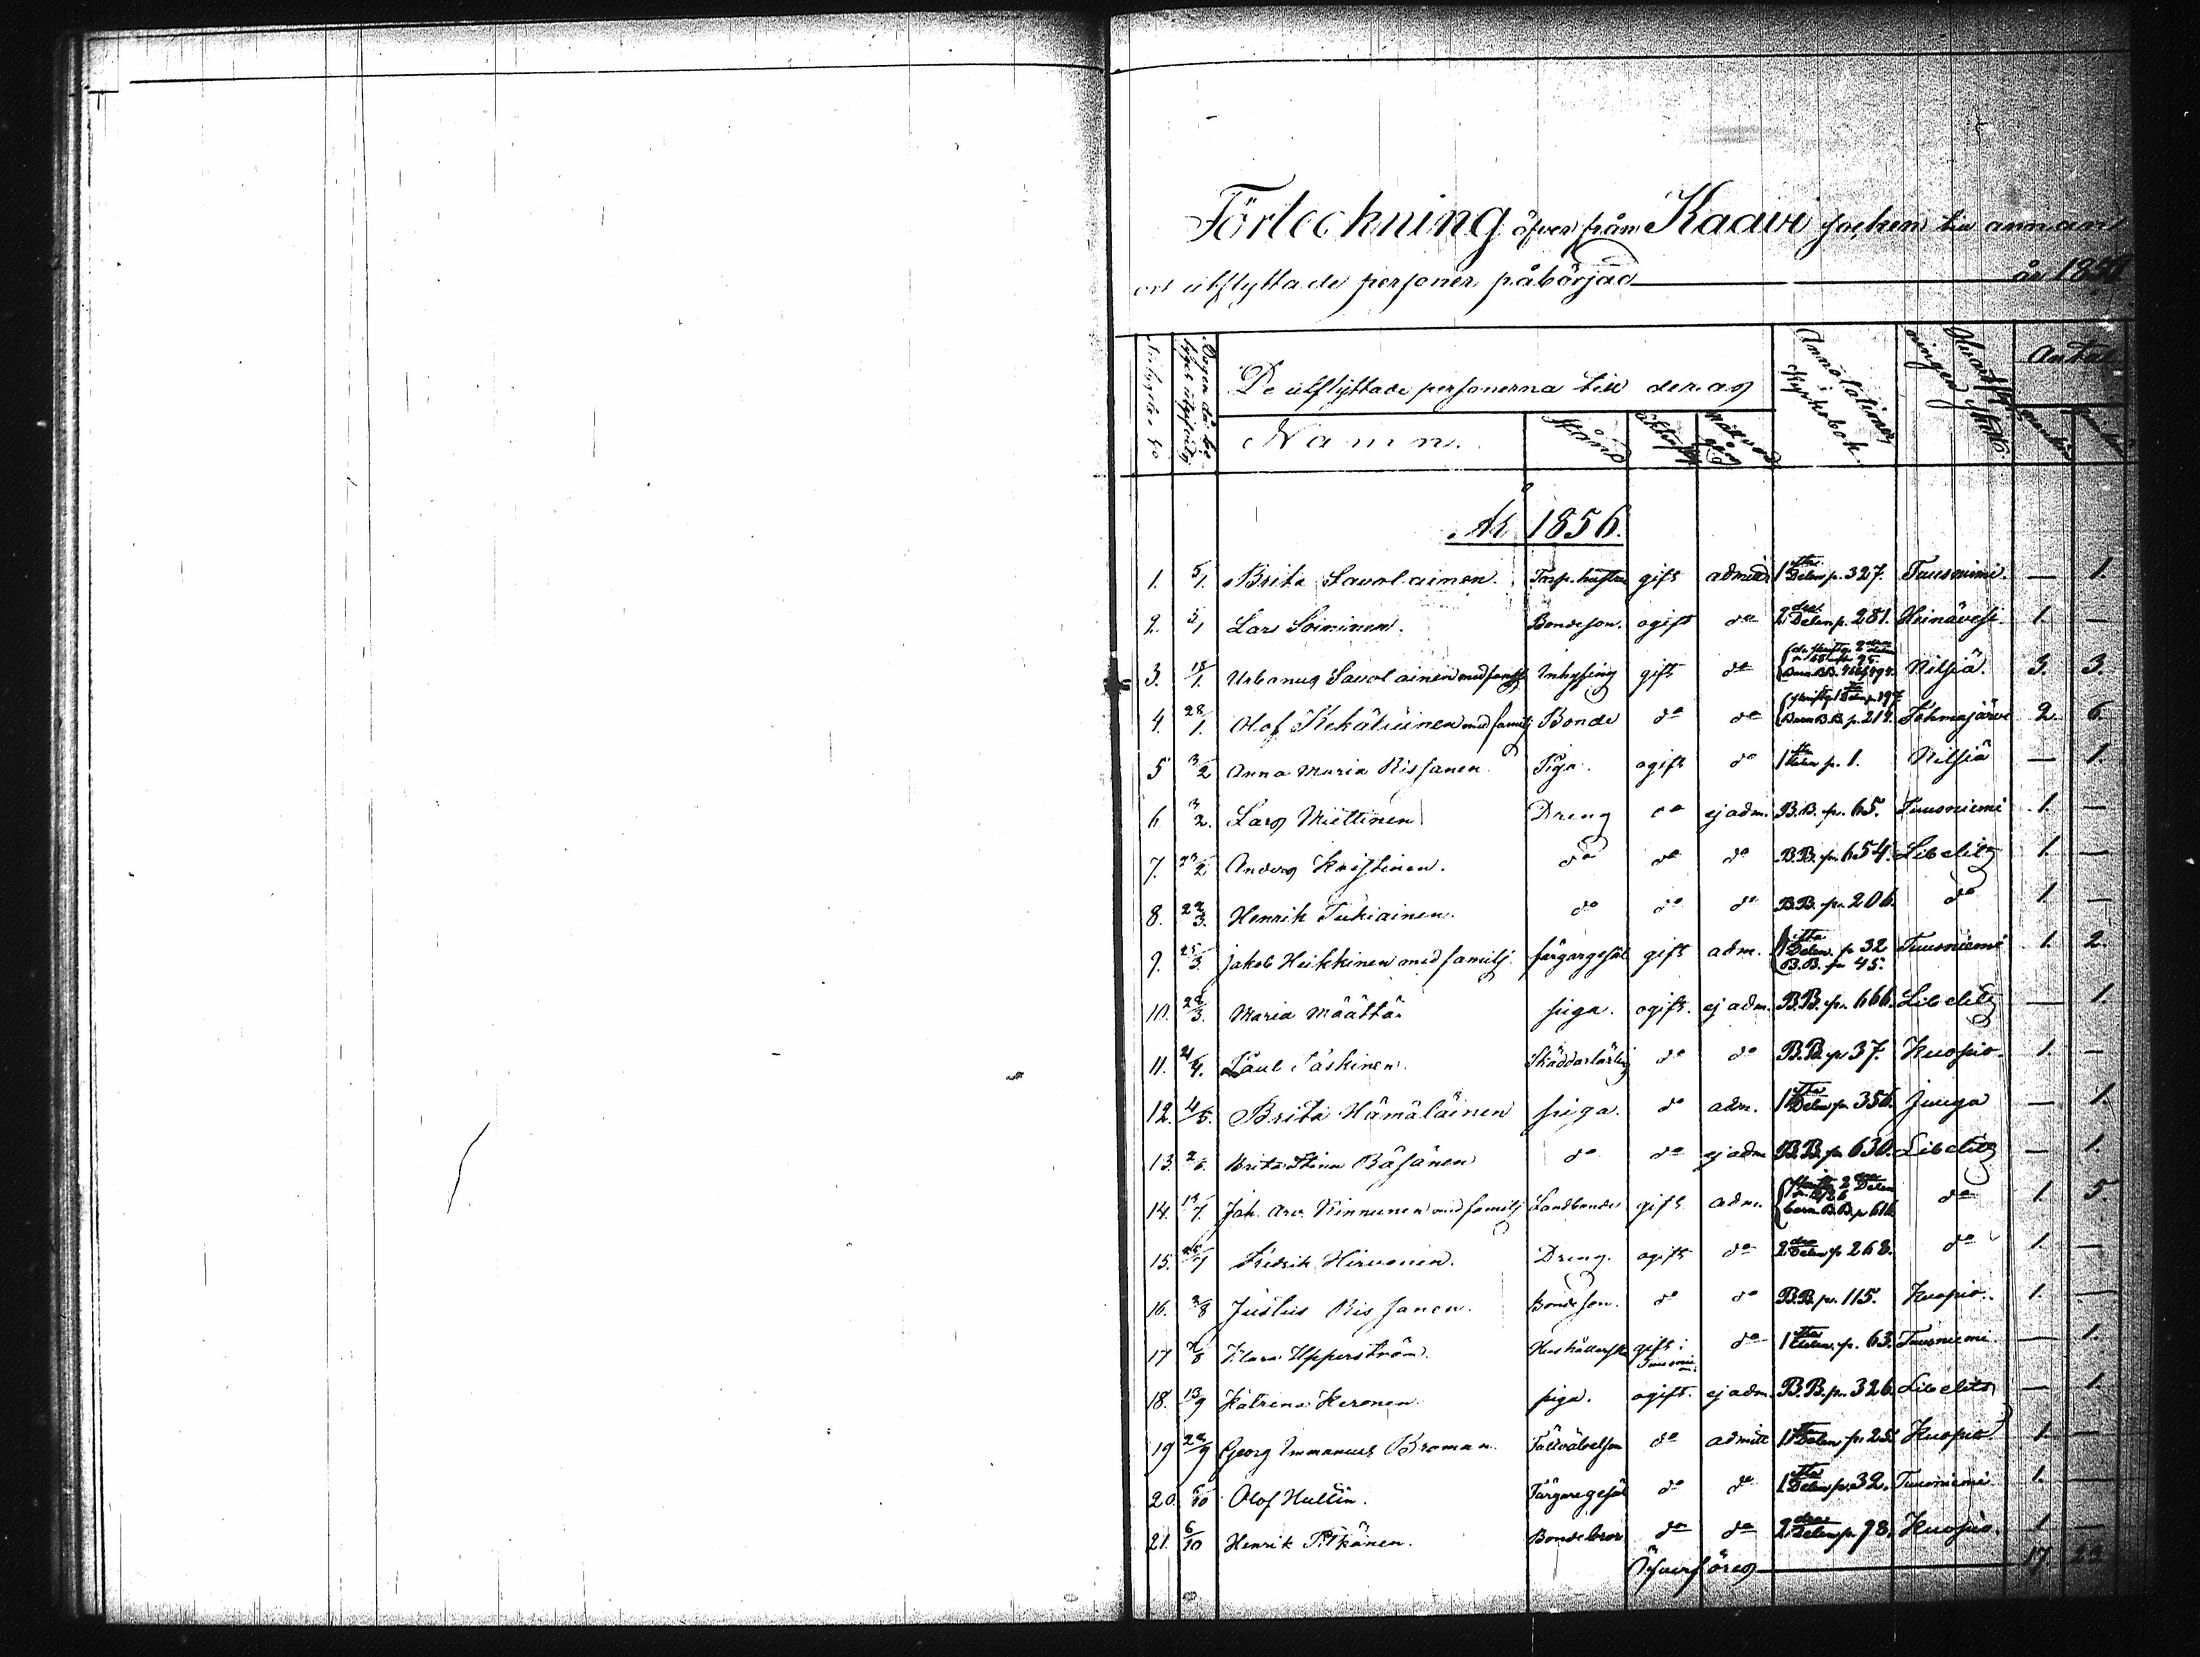 Förteckning öfver från Kaavi socken till annan
ort utflyttade personer påbörjad år 1856
De utflyttade personerna till deras
Annotationer i kyrkobok.
Antal
Namn. Stånd
År 1856.
1. 5/1. Brita Savolainen. Torp. hustru gift admitt. 1sta Delen p. 327. Tuusniemi. — 1.
2. 5/1 Lars Soininen. Bondeson. ogift do 2dra Delen p. 281. Heinävesi. 1. —
3. 18/1. Urbanus Savolainen med familj Inhysing gift do Nilsiä. 3. 3.
4. 28/1. Olof Kekäläinen med familj Bonde do do B.B. p. 219. Tohmajärvi 2. 6.
5 3/2 Anna Maria Rissanen. Piga. ogift do 1sta Delen p. 1. Nilsiä — 1.
6 3/2. Lars Miettinen Dreng do ej adm. B.B. p. 65. Tuusniemi 1. —
7. 23/2 Anders Koistinen. do do do B.B. p. 654. Libelits 1. —
8. 22/3. Henrik Tukiainen. do do do B.B. p. 206. do 1 —
9. 25/3. Jakob Heikkinen med familj. färgargesäl gift adm. 1sta Delen p. 32 B.B. p. 45. Tuusniemi 1. 2.
10. 28/3. Maria Määttä piga. ogift. ej adm. B.B. p. 666. Libelits — 1.
11. 21/4. Paul Laskinen. Skäddarlärling do do B.B. p. 37. Kuopio. 1. —
12. 4/5. Brita Hämäläinen piga. do adm. 1sta Delen p. 356. Juuga — 1.
13. 2/6. Brita Stina Räsänen do do ej adm B.B. p. 630. Libelits — 1.
14. 13/7. Joh. Arv. Kinnunen med familj Landbonde gift adm. barn B.B. p 616 do 1. 5.
15. 25/7 Fredrik Hirvonen. Dreng. ogift do 2dra Delen p 268. do 1. —
16. 3/8 Justus Rissanen. Bondeson. do do B.B. p. 115. Kuopio. 1. —
17 7/8 Klara Upperström. Hushållerska gift i Tuusniemi do 1sta Delen. p. 63. Tuusniemi. — 1.
18. 13/9 Katrina Keronen. piga. ogift. ej adm. B.B. p. 326. Libelits — 1.
19 22/9 Georg Immanuel Broman. do admitt 1sta Delen p. 25. Kuopio. 1. —
20. 6/10 Olof Hullin. Färgaregesäl do do 1sta Delen p. 32. Tuusniemi 1. —
21. 6/10 Henrik Pitkänen. Bondebror do do 2dra Delen p. 98. Kuopio. 1 —
Öfverföres 17. 22